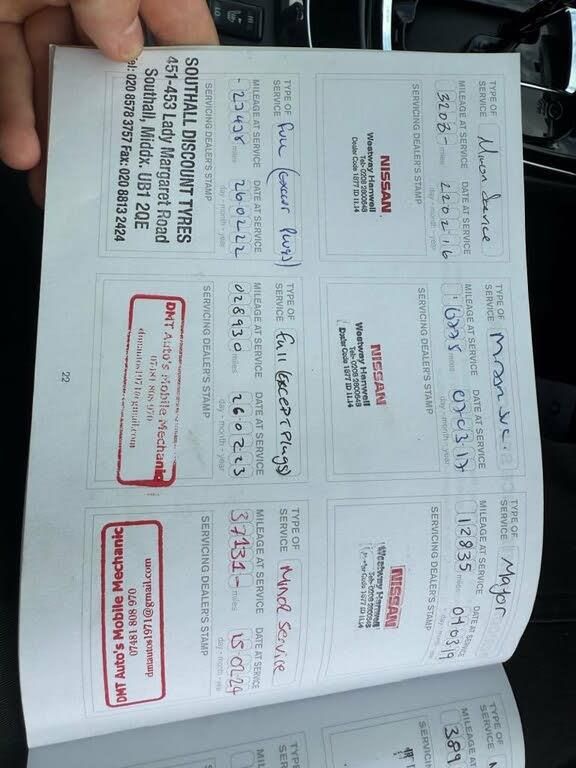 TYPE OF SERVICE Minor Service
MILEAGE AT SERVICE miles
3203-
DATE AT SERVICE day - month - year
220216
SERVICING DEALER'S STAMP
NISSAN
Westway Hanwell
Tel: 0208 2800648
Dealer Code 1877 ID 1L14
TYPE OF SERVICE
MILEAGE AT SERVICE miles
DATE AT SERVICE day - month - year
070317
SERVICING DEALER'S STAMP
NISSAN
Westway Hanwell
Tel: 0208 2800648
Dealer Code 1877 ID 1L14
TYPE OF SERVICE Major
MILEAGE AT SERVICE miles
12835
DATE AT SERVICE day - month - year
040319
SERVICING DEALER'S STAMP
NISSAN
Westway Hanwell
Tel: 0208 2800648
Dealer Code 1877 ID 1L14
TYPE OF SERVICE Full (Except Plugs)
MILEAGE AT SERVICE miles
-27438
DATE AT SERVICE day - month - year
260222
SERVICING DEALER'S STAMP
SOUTHALL DISCOUNT TYRES
451-453 Lady Margaret Road
Southall, Middx. UB1 2QE
el: 020 8578 3757 Fax: 020 8813 2424
TYPE OF SERVICE Full (Except Plugs)
MILEAGE AT SERVICE miles
028930
DATE AT SERVICE day - month - year
260223
SERVICING DEALER'S STAMP
DMT Auto's Mobile Mechanic
07481 808 970
dmtautos1971@gmail.com
TYPE OF SERVICE Minor Service
MILEAGE AT SERVICE miles
37131-
DATE AT SERVICE day - month - year
SERVICING DEALER'S STAMP
DMT Auto's Mobile Mechanic
07481 808 970
dmtautos1971@gmail.com
22
TYPE OF SERVICE
MILEAGE AT
389